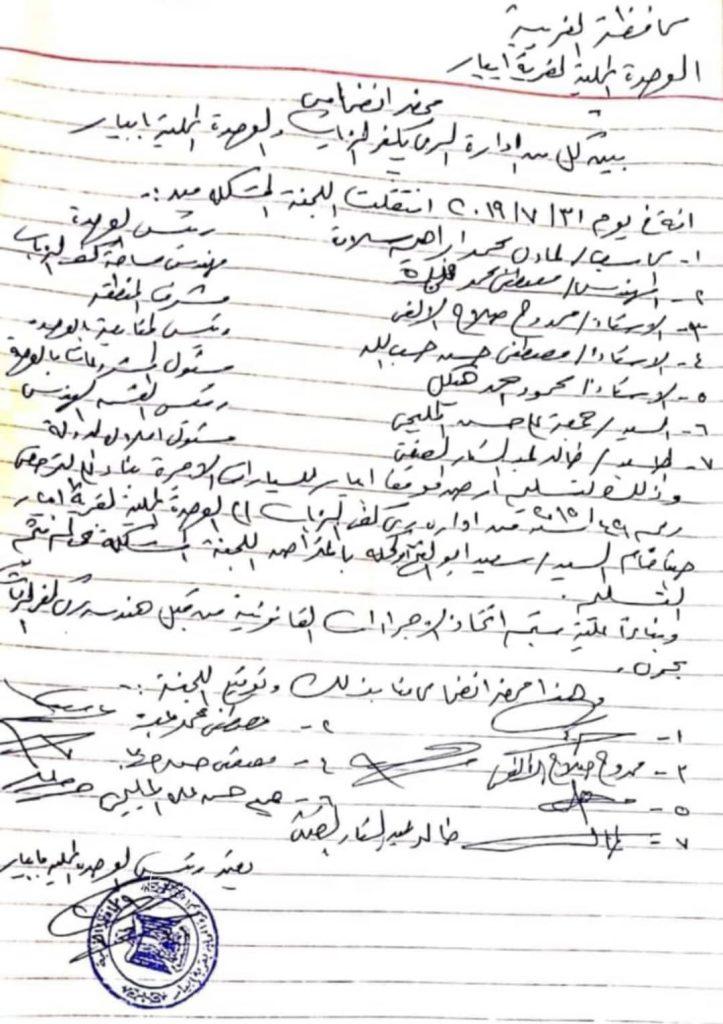 محافظة الغربية
الوحدة المحلية لقرية ابيار
محضر انضمامى
بين كل من ادارة الرى بكفر الزيات والوحدة المحلية بابيار
انه فى يوم ٣١ / ٧ / ٢٠١٩ انتقلت اللجنة المشكله من :-
١- محاسب / عادل محمد ابراهيم سلامة رئيس الوحدة
٢- المهندس / مصطفى محمد مهندس مساحة كفر الزيات
٣- الاستاذ / ممدوح صلاح الالفى مشرف المنطقة
٤- الاستاذ / مصطفى حسن حسب الله رئيس المتابعة بالوحدة
٥- الاستاذ / محمود احمد هيكل مسئول المشروعات بالوحدة
٦- السيد / جمعة على حسن المليجى رئيس القسم الهندسى
٧- السيد / خالد عبد الستار مسئول املاك الدولة
وذلك لتسليم ارض موقف ابيار للسيارات الاجرة بناء على الترخيص
رقم لسنة من ادارة رى كفر الزيات الى الوحدة المحلية لقرية ابيار
حيث قام السيد / سعيد ابو باعتراض اللجنة المشكلة ولم يتم
التسليم .
وبناءا علية سيتم اتخاذ الاجراءات القانونية من قبل هندسة رى كفر الزيات
بحرى .
وهذا محضر انضمامى منا بذلك وتوقيع اللجنة :-
١- ٢- مصطفى محمد
٣- ممدوح صلاح الالفى ٤- مصطفى حسن
٥- ٦- جمعه حسن على المليجى
٧- خالد عبد الستار
يعتمد رئيس الوحدة المحلية بابيار